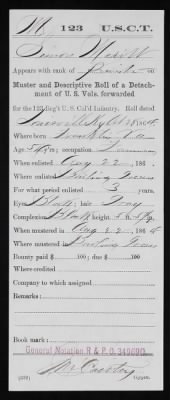 M 123 U.S.C.T.
Simon
Appears with rank of Private on
Muster and Descriptive Roll of a Detach-
ment of U. S. Vols. forwarded
for the 123 Reg't U. S. Col'd Infantry. Roll dated
Louisville Ky Oct 186
Where born Franklin
Age y'rs; occupation Farmer
When enlisted Aug 22, 186
Where enlisted Bowling Green
For what period enlisted 3 years.
Eyes Black; hair
Complexion Black; height 5 ft. in.
When mustered in Aug 22, 186
Where mustered in Bowling Green
Bounty paid $ 100; due $ 100
Where credited
Company to which assigned
Remarks:
Book mark:
General Notation R & P O
(339) Copyist.